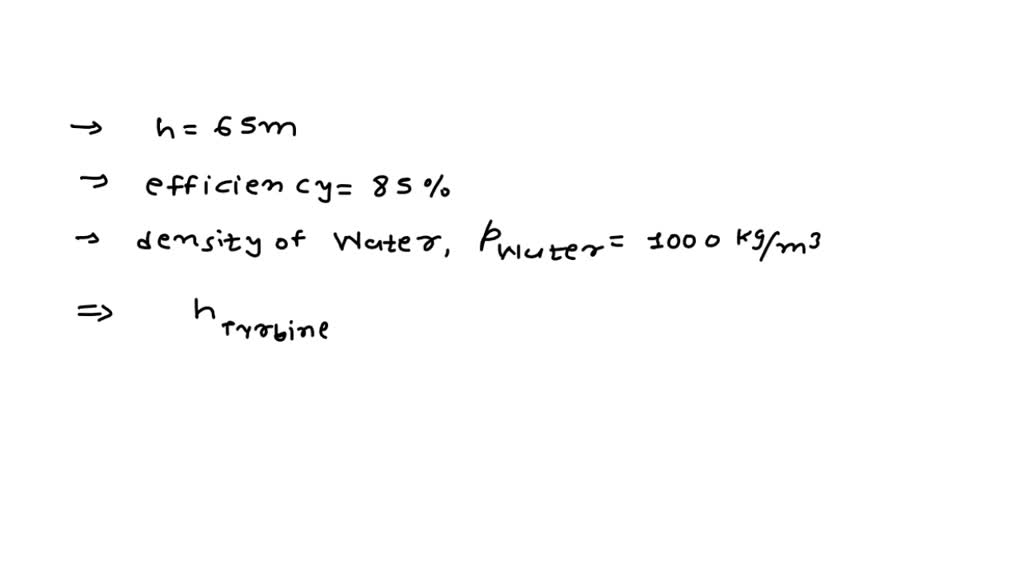 → h = 65m
→ efficiency = 85%
→ density of Water, ρWater = 1000 kg/m3
⇒ hTurbine